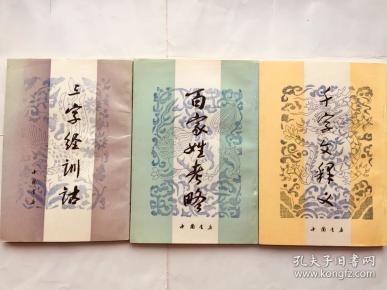 三字经训诂
中国书店
百家姓考略
中国书店
千字文释义
中国书店
孔夫子旧书网